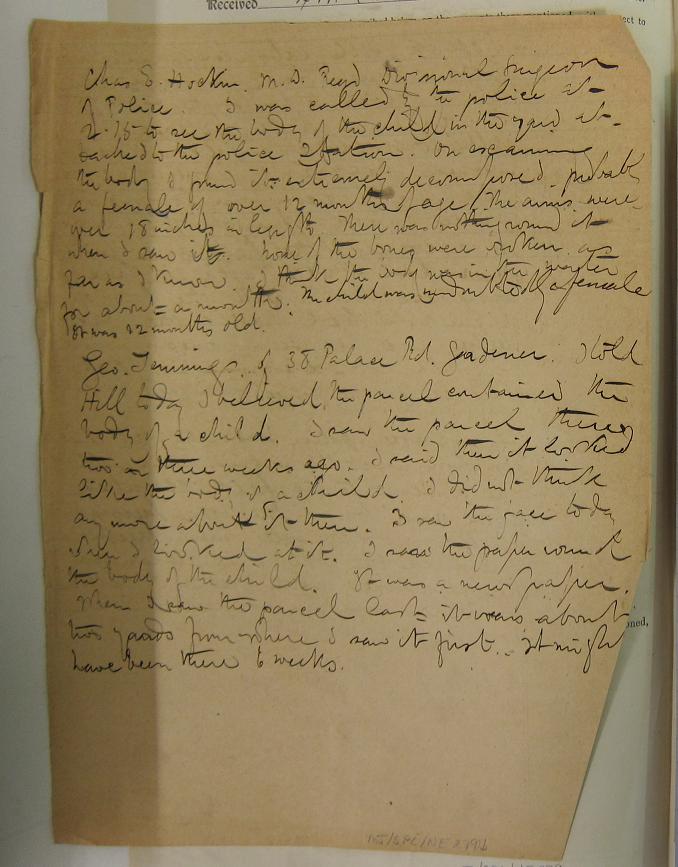 Received
ect to
Chas E. Hocken. M.D. Regd Divisional Surgeon
of Police. I was called by the police at
2-15 to see the body of the child in the yard at-
tached to the police Station. On examining
the body I found it extremely decomposed, probably
a female of over 12 months of age. The arms were
over 18 inches in length. There was nothing round it
when I saw it. None of the bones were broken as
far as I know. I think the body was in the water
for about a month. The child was undoubtedly a female
It was 12 months old.
Geo. Jennings, of 38 Palace Rd. Gardener. I told
Hill today I believed the parcel contained the
body of a child. I saw the parcel there
two or three weeks ago. I said then it looked
like the body of a child. I did not think
any more about it then. I saw the face today
when I looked at it. I saw the paper round
the body of the child. It was a newspaper.
When I saw the parcel last it was about
two yards from where I saw it first. It might
have been there 6 weeks.
oned,